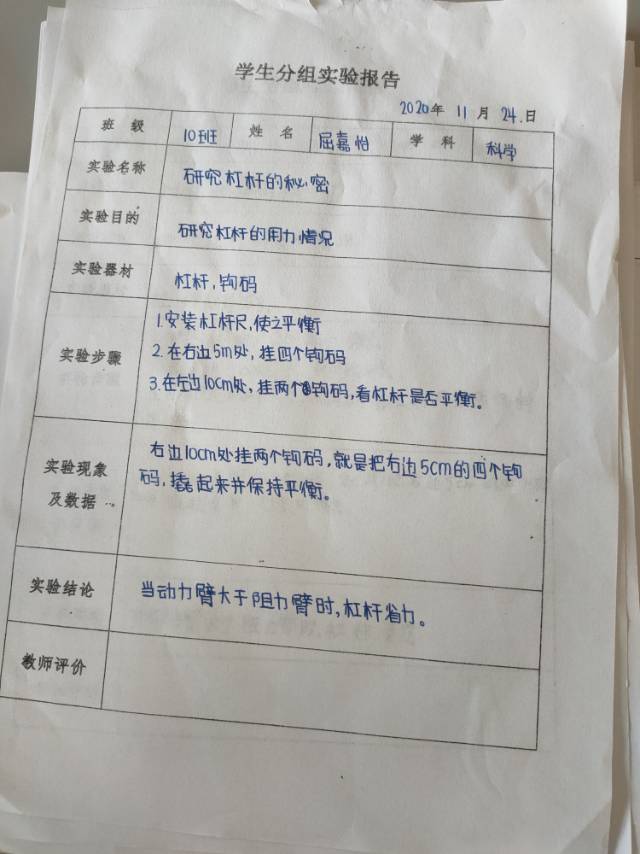 学生分组实验报告
2020年 11月 24.日
班 级 10班 姓 名 屈嘉怡 学 科 科学
实验名称 研究杠杆的秘密
实验目的 研究杠杆的用力情况
实验器材 杠杆,钩码
1.安装杠杆尺,使之平衡
实验步骤 2.在右边5m处,挂四个钩码
3.在左边10cm处,挂两个钩码,看杠杆是否平衡。
实验现象 右边10cm处挂两个钩码,就是把右边5cm的四个钩
及数据 码,撬起来并保持平衡。
实验结论 当动力臂大于阻力臂时,杠杆省力。
教师评价